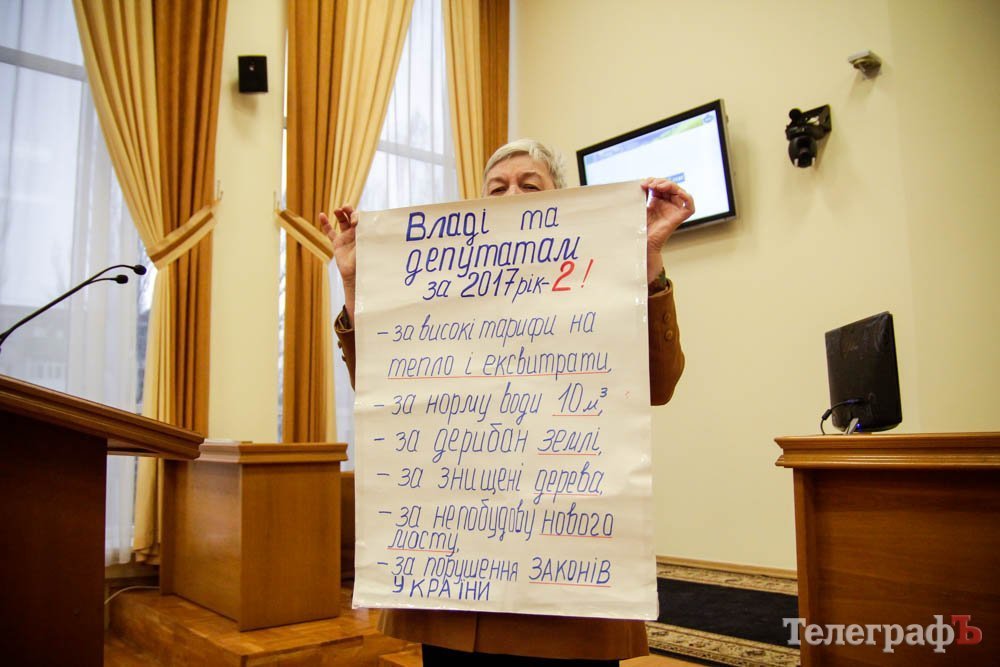 Владі та
депутатам
за 2017 рік - 2!
- за високі тарифи на
тепло і ексвитрати,
- за норму води 10 м³,
- за дерибан землі,
- за знищені дерева,
- за непобудову нового
мосту,
- за порушення ЗАКОНІВ
УКРАЇНИ
ТелеграфЪ